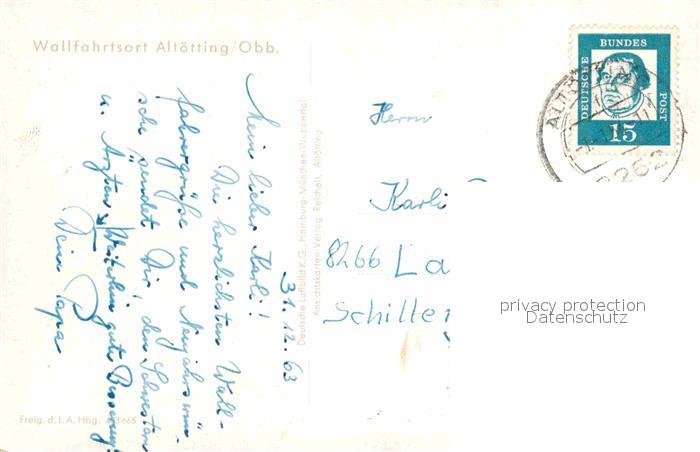 Wallfahrtsort Altötting/Obb.
Mein lieber Karli!
Die herzlichsten Wall-
fahrergrüße und Neujahrswün-
sche sendet Dir, den Schwestern
u. Ärzten
Weiterhin gute Besserung!
Dein Papa
31.12.63
Freig. d. L.A. Hbg.
Deutsche Luftbild K.G., Hamburg-München-Wuppertal
Ansichtskarten-Verlag Reichelt, Altötting
DEUTSCHE
BUNDES
POST
15
8262
Herrn
Karli
8266 La
Schiller
privacy protection
Datenschutz